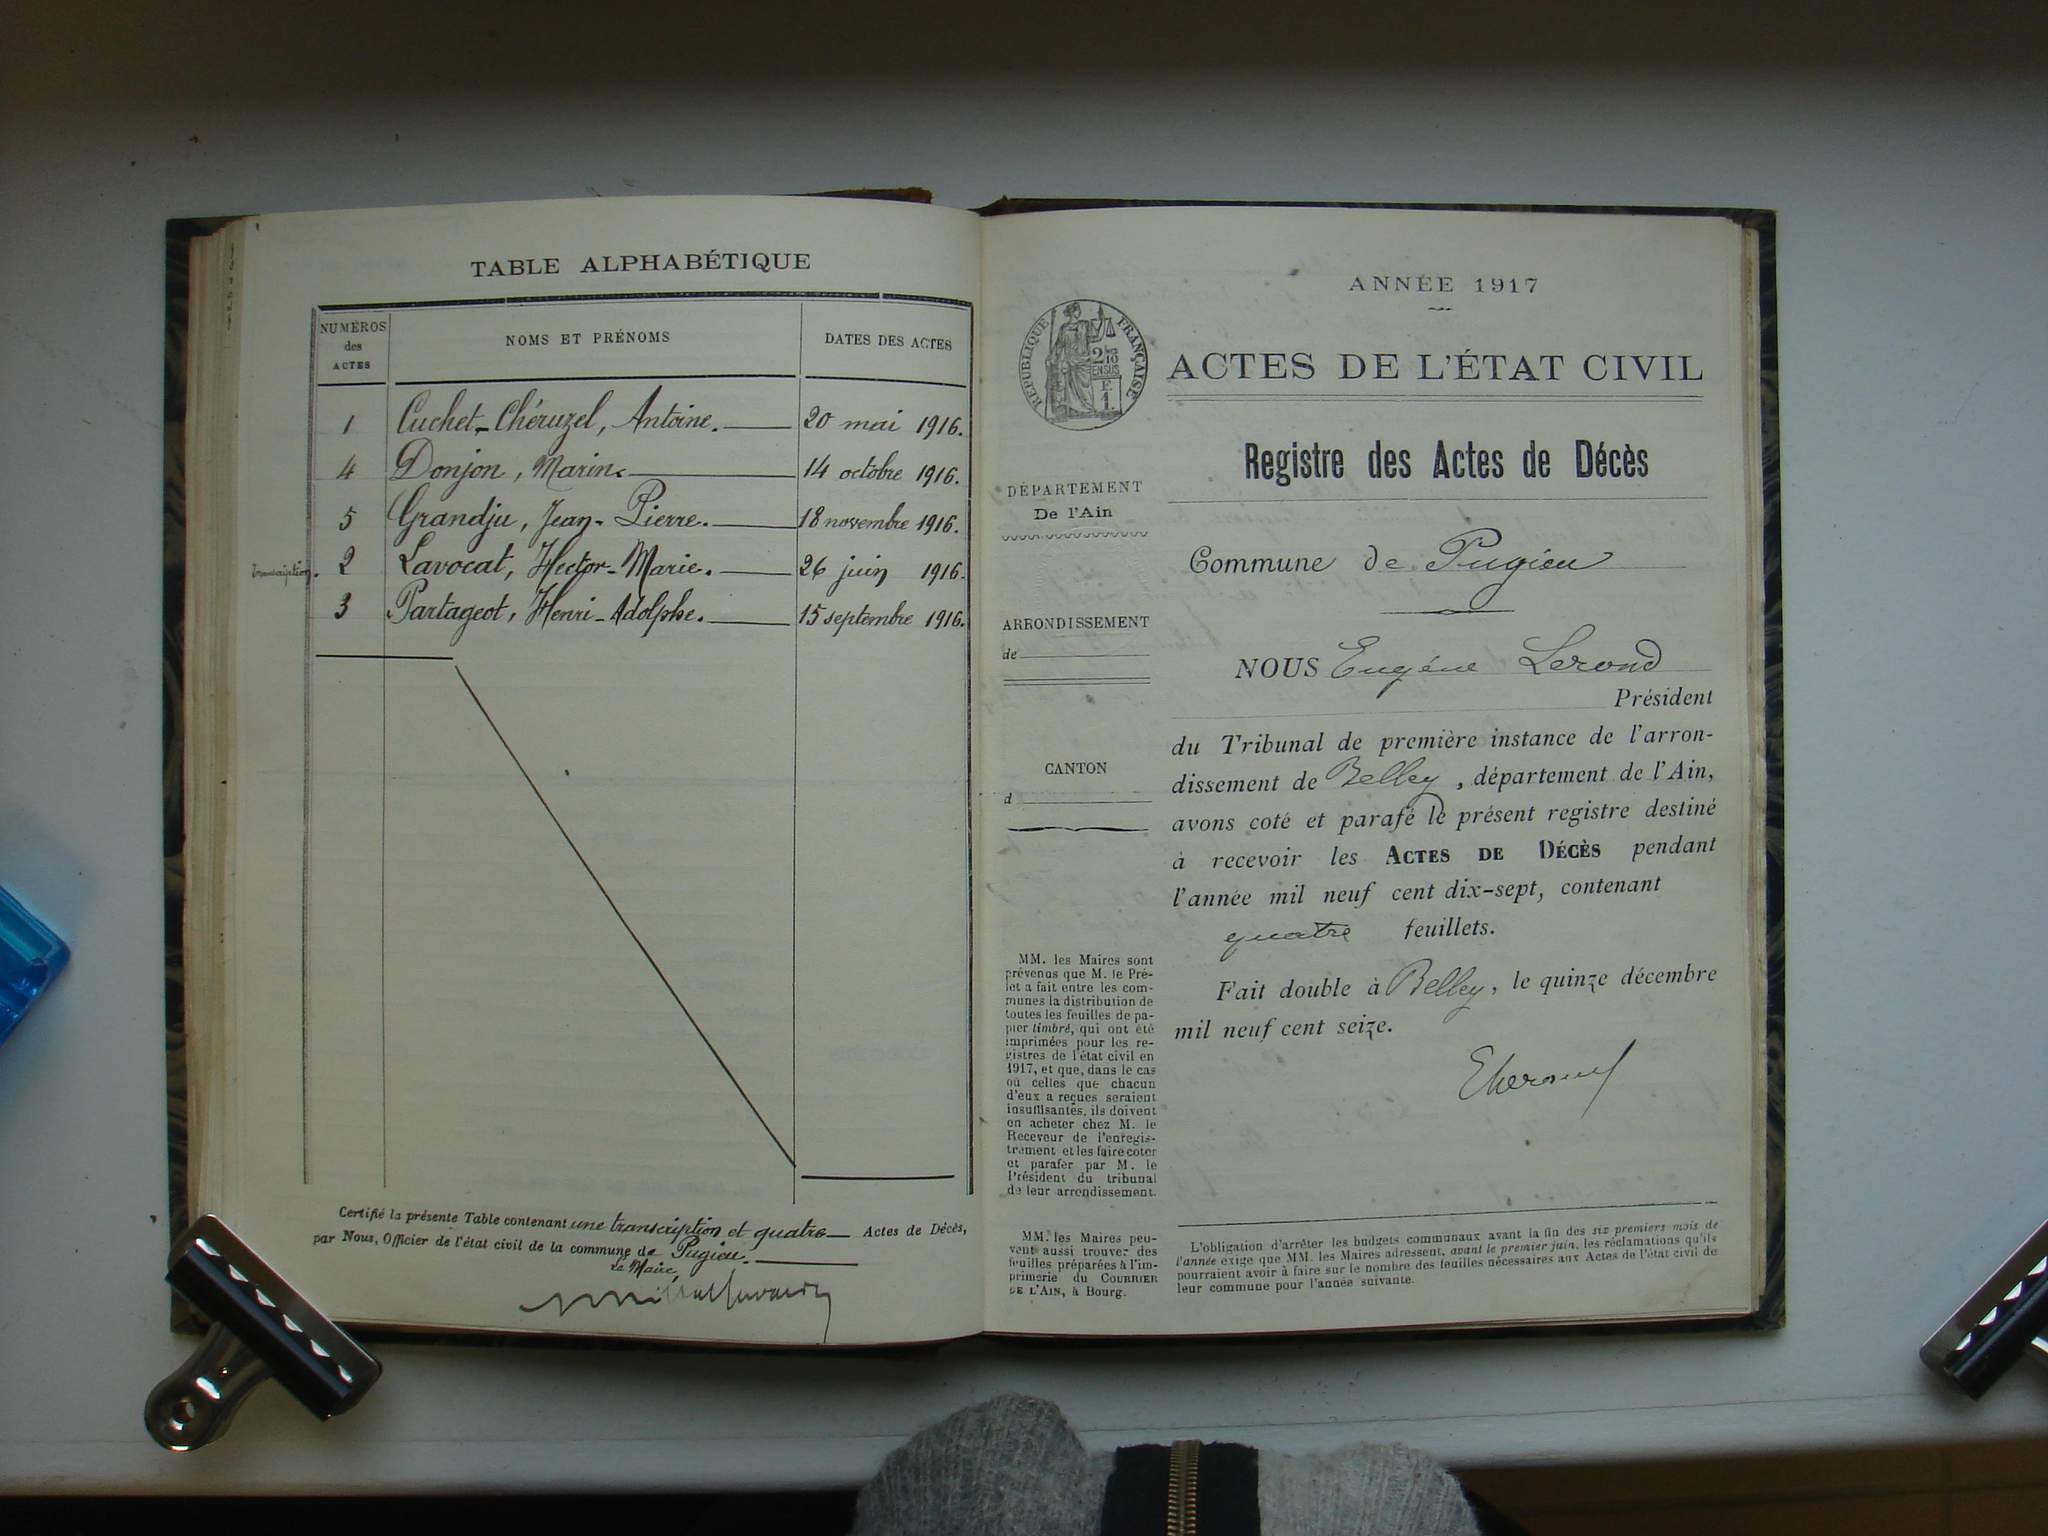 TABLE ALPHABÉTIQUE
NUMÉROS des ACTES
NOMS ET PRÉNOMS
DATES DES ACTES
1 Cuchet-Chéruzel, Antoine. 20 mai 1916.
4 Donjon, Marin. 14 octobre 1916.
5 Grandju, Jean-Pierre. 18 novembre 1916.
transcription. 2 Lavocat, Hector-Marie. 26 juin 1916.
3 Partageot, Henri-Adolphe. 15 septembre 1916.
Certifié la présente Table contenant une transcription et quatre Actes de Décès,
par Nous, Officier de l'état civil de la commune de Pugieu.
Le Maire,
ANNÉE 1917
RÉPUBLIQUE FRANÇAISE
ACTES DE L'ÉTAT CIVIL
Registre des Actes de Décès
DÉPARTEMENT
De l'Ain
Commune de Pugieu
ARRONDISSEMENT
de
NOUS Eugène Lerond
Président
du Tribunal de première instance de l'arron-
dissement de Belley, département de l'Ain,
avons coté et parafé le présent registre destiné
à recevoir les ACTES DE DÉCÈS pendant
l'année mil neuf cent dix-sept, contenant
quatre feuillets.
Fait double à Belley, le quinze décembre
mil neuf cent seize.
CANTON
d
MM. les Maires sont
prévenus que M. le Pré-
fet a fait entre les com-
munes la distribution de
toutes les feuilles de pa-
pier timbré, qui ont été
imprimées pour les re-
gistres de l'état civil en
1917, et que, dans le cas
où celles que chacun
d'eux a reçues seraient
insuffisantes, ils doivent
en acheter chez M. le
Receveur de l'enregis-
trement et les faire coter
et parafer par M. le
Président du tribunal
de leur arrondissement.
MM. les Maires peu-
vent aussi trouver des
feuilles préparées à l'im-
primerie du COURRIER
DE L'AIN, à Bourg.
L'obligation d'arrêter les budgets communaux avant la fin des six premiers mois de
l'année exige que MM. les Maires adressent, avant le premier juin, les réclamations qu'ils
pourraient avoir à faire sur le nombre des feuilles nécessaires aux Actes de l'état civil de
leur commune pour l'année suivante.